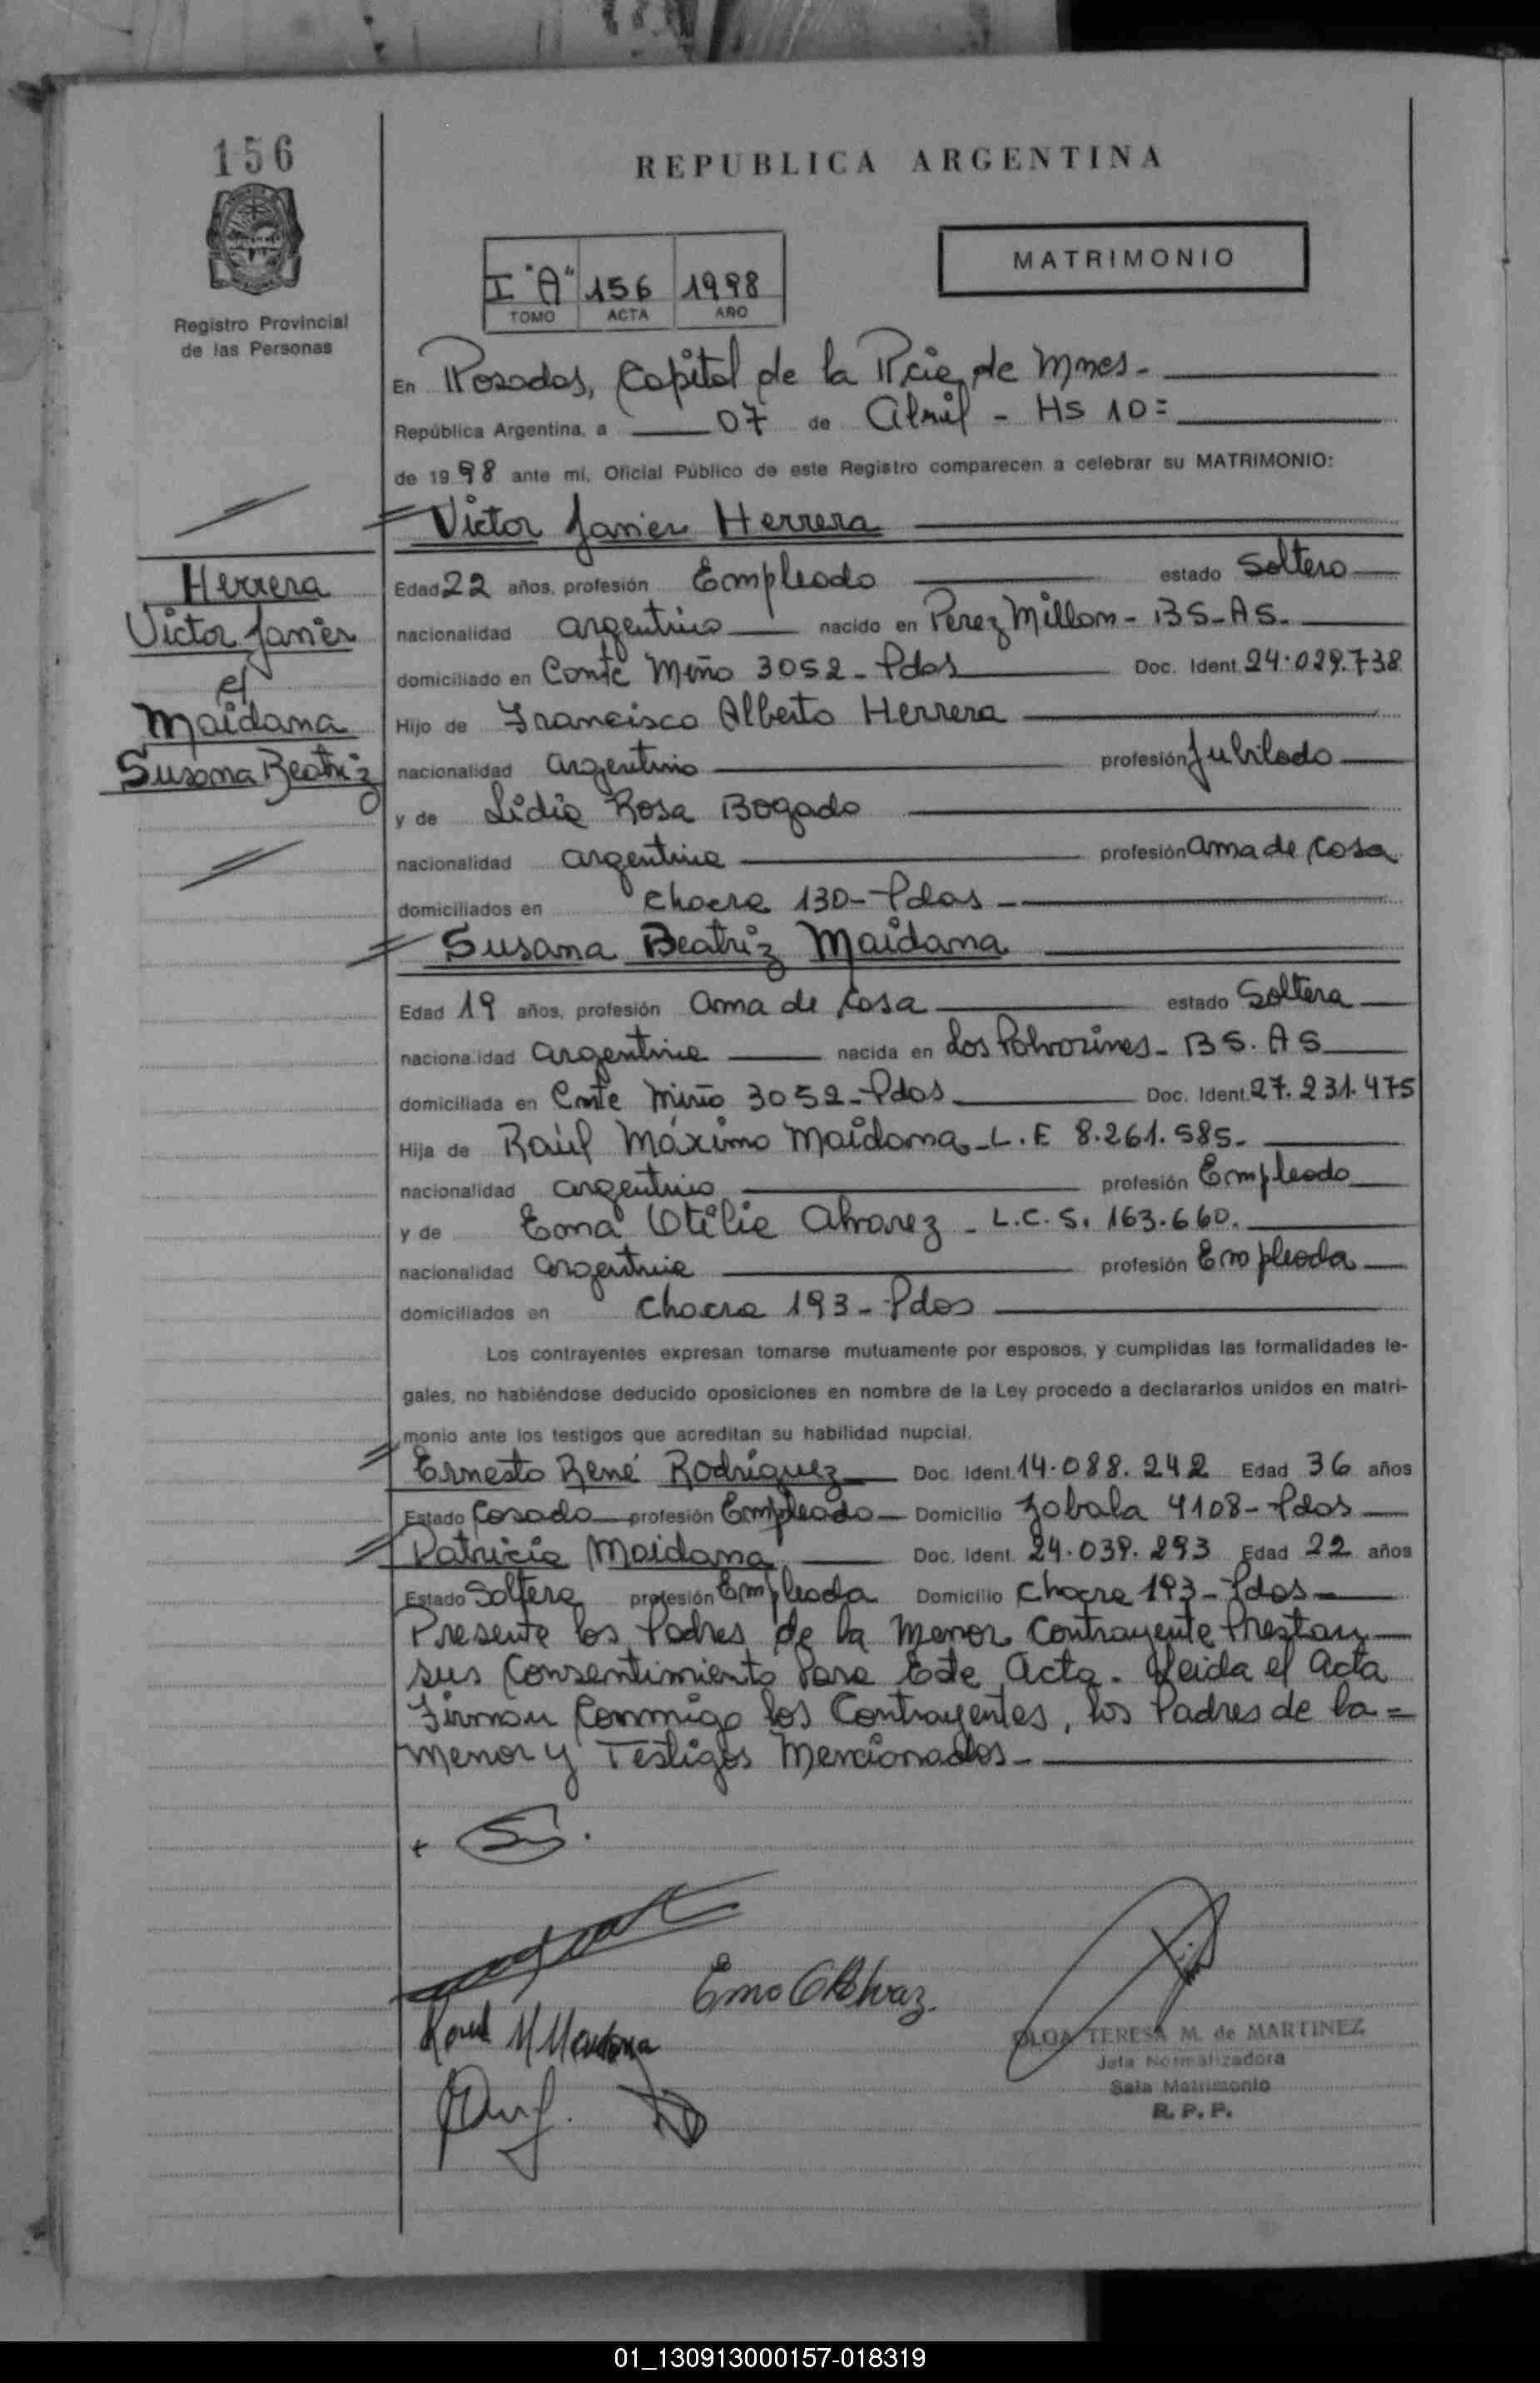 156
REPUBLICA ARGENTINA
MATRIMONIO
I "A" 156 1998
TOMO ACTA AÑO
Registro Provincial
de las Personas
En Posadas, Capital de la Pcia de Mnes.
República Argentina, a 07 de Abril - Hs 10=
de 1998 ante mí, Oficial Público de este Registro comparecen a celebrar su MATRIMONIO:
Victor Javier Herrera
Herrera
Victor Javier
Maidana
Susana Beatriz
Edad 22 años, profesión Empleado estado Soltero
nacionalidad argentino nacido en Perez Millan - BS-AS.
domiciliado en Conte Miño 3052 - Pdas Doc. Ident. 24.029.738
Hijo de Francisco Alberto Herrera
nacionalidad argentino profesión Jubilado
y de Lidia Rosa Bogado
nacionalidad argentina profesión ama de casa
domiciliados en chacra 130 - Pdas -
Susana Beatriz Maidana
Edad 19 años, profesión ama de casa estado Soltera
nacionalidad argentina nacida en Los Polvorines - BS. AS
domiciliada en Conte Miño 3052 - Pdas Doc. Ident. 27.231.475
Hija de Raúl Máximo Maidana - L.E 8.261.585.
nacionalidad argentino profesión Empleado
y de Ema Otilia Alvarez - L.C. 5.163.660.
nacionalidad argentina profesión Empleada
domiciliados en chacra 193 - Pdas
Los contrayentes expresan tomarse mutuamente por esposos, y cumplidas las formalidades le-
gales, no habiéndose deducido oposiciones en nombre de la Ley procedo a declararlos unidos en matri-
monio ante los testigos que acreditan su habilidad nupcial.
Ernesto René Rodriguez Doc. Ident. 14.088.242 Edad 36 años
Estado Casado profesión Empleado Domicilio Zabala 4108 - Pdas
Patricia Maidana Doc. Ident. 24.039.293 Edad 22 años
Estado Soltera profesión Empleada Domicilio chacra 193 - Pdas
Presente los Padres de la menor Contrayente Prestan
sus Consentimiento Para Este Acta. Leida el Acta
Firman Conmigo los Contrayentes, los Padres de la =
menor y Testigos Mencionados -
Raul M Maidana
OLGA TERESA M. de MARTINEZ
Jefa Normalizadora
Sala Matrimonio
R. P. P.
01_130913000157-018319